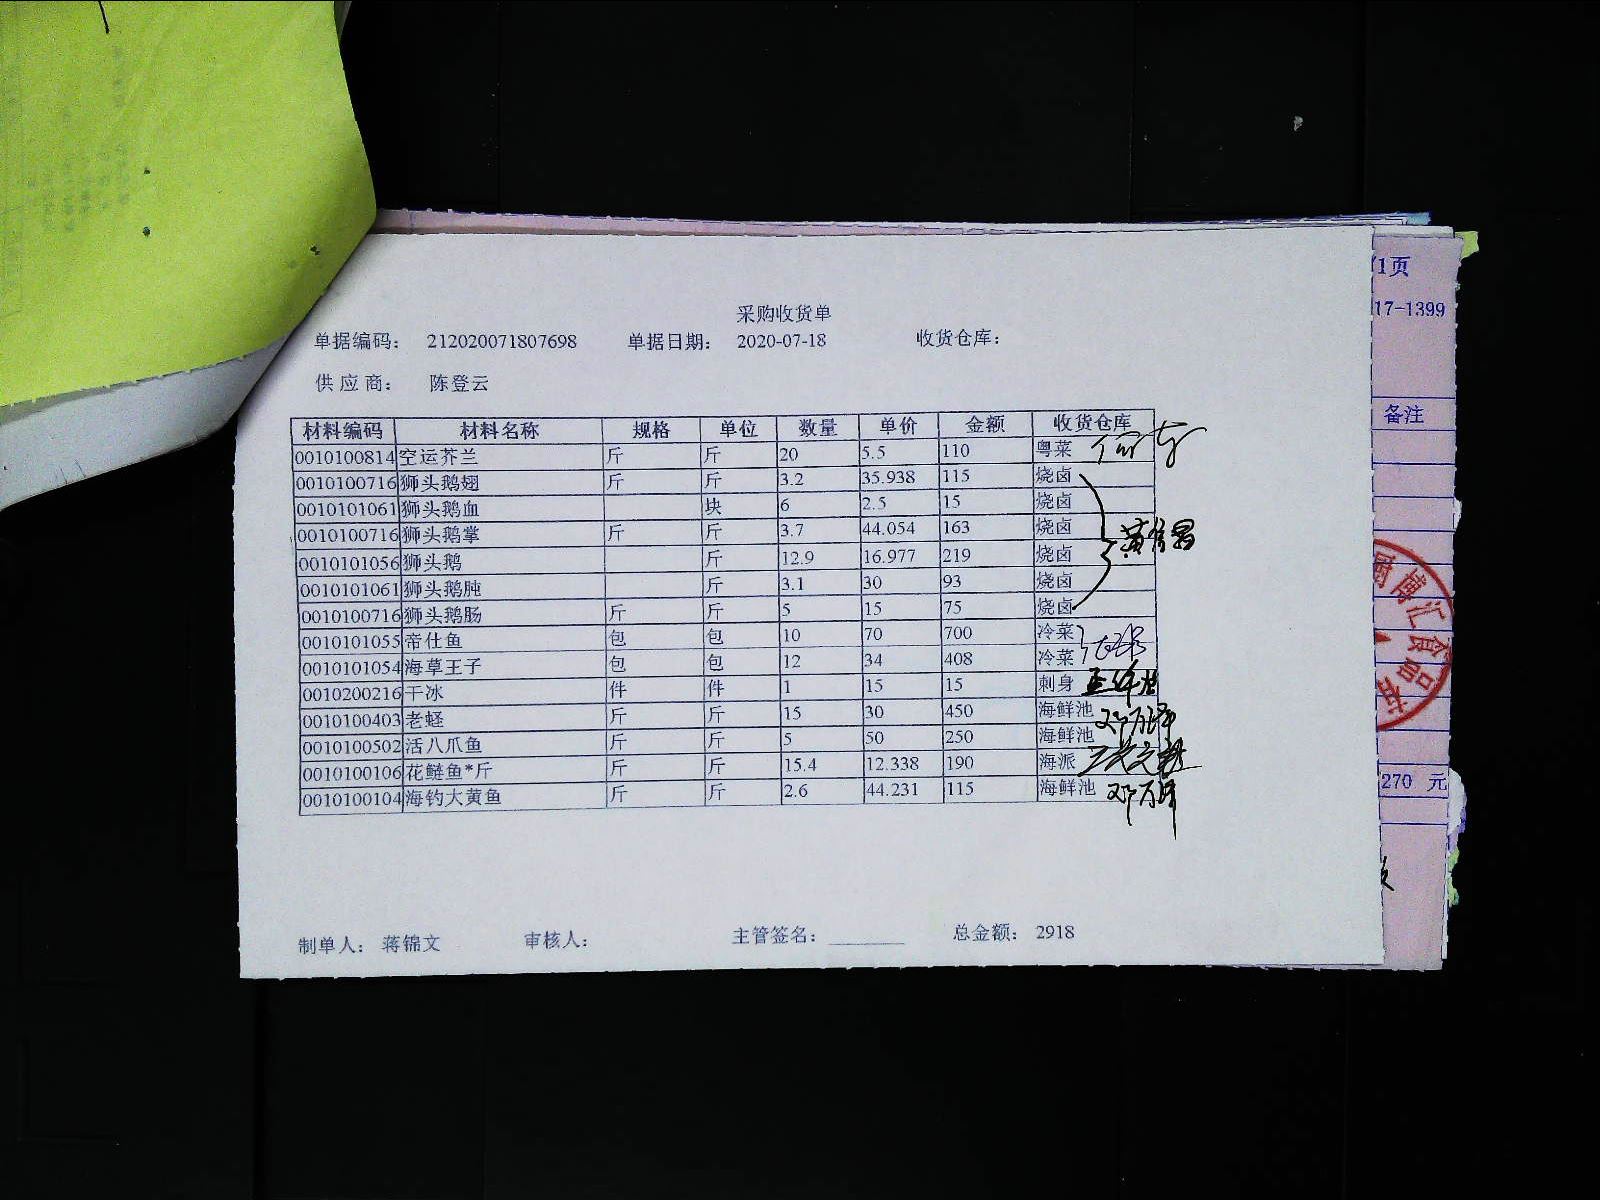 采购收货单
单据编码： 212020071807698 单据日期： 2020-07-18 收货仓库：
供应商： 陈登云
材料编码 材料名称 规格 单位 数量 单价 金额 收货仓库
0010100814 空运芥兰 斤 斤 20 5.5 110 粤菜
0010100716 狮头鹅翅 斤 斤 3.2 35.938 115 烧卤
0010101061 狮头鹅血 块 6 2.5 15 烧卤
0010100716 狮头鹅掌 斤 斤 3.7 44.054 163 烧卤
0010101056 狮头鹅 斤 12.9 16.977 219 烧卤
0010101061 狮头鹅肫 斤 3.1 30 93 烧卤
0010100716 狮头鹅肠 斤 斤 5 15 75 烧卤
0010101055 帝仕鱼 包 包 10 70 700 冷菜
0010101054 海草王子 包 包 12 34 408 冷菜
0010200216 干冰 件 件 1 15 15 刺身
0010100403 老蛏 斤 斤 15 30 450 海鲜池
0010100502 活八爪鱼 斤 斤 5 50 250 海鲜池
0010100106 花鲢鱼*斤 斤 斤 15.4 12.338 190 海派
0010100104 海钓大黄鱼 斤 斤 2.6 44.231 115 海鲜池
制单人： 蒋锦文 审核人： 主管签名： 总金额： 2918
/1页
17-1399
备注
博汇食品
270 元